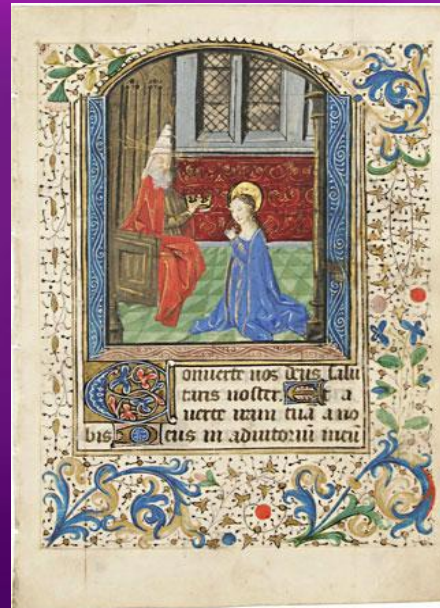 Conuerte nos deus salu
taris noster. Et a
uerte iram tuã a no
bis Deus in adiutoriũ meũ